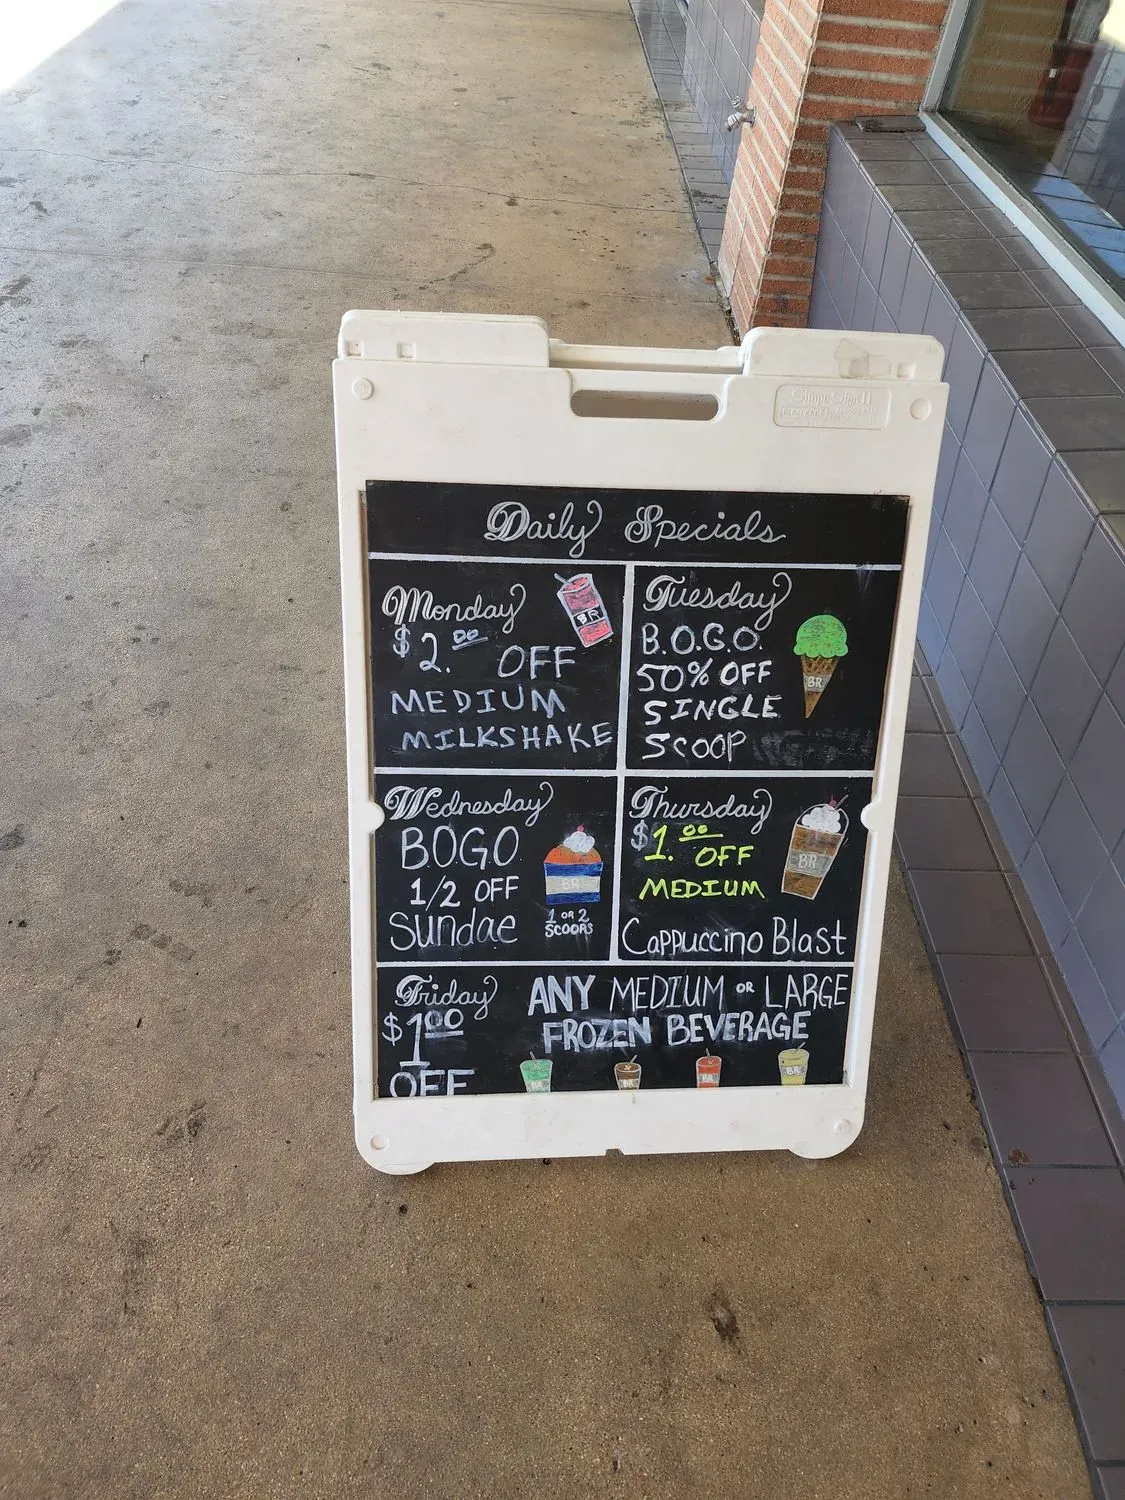 Daily Specials
Monday
$2.00 OFF
MEDIUM
MILKSHAKE
BR
Tuesday
B.O.G.O.
50% OFF
SINGLE
SCOOP
BR
Wednesday
BOGO
1/2 OFF
Sundae
BR
1 OR 2
SCOOPS
Thursday
$1.00 OFF
MEDIUM
Cappuccino Blast
BR
Friday
$1.00
OFF
ANY MEDIUM OR LARGE
FROZEN BEVERAGE
BR BR BR BR